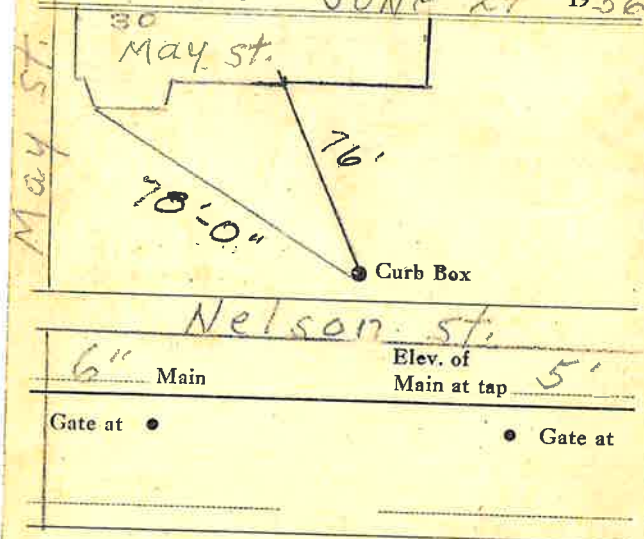 June 27 1956
30
May St.
May St.
76'
78'-0"
Curb Box
Nelson St.
6" Main
Elev. of
Main at tap 5'
Gate at
Gate at